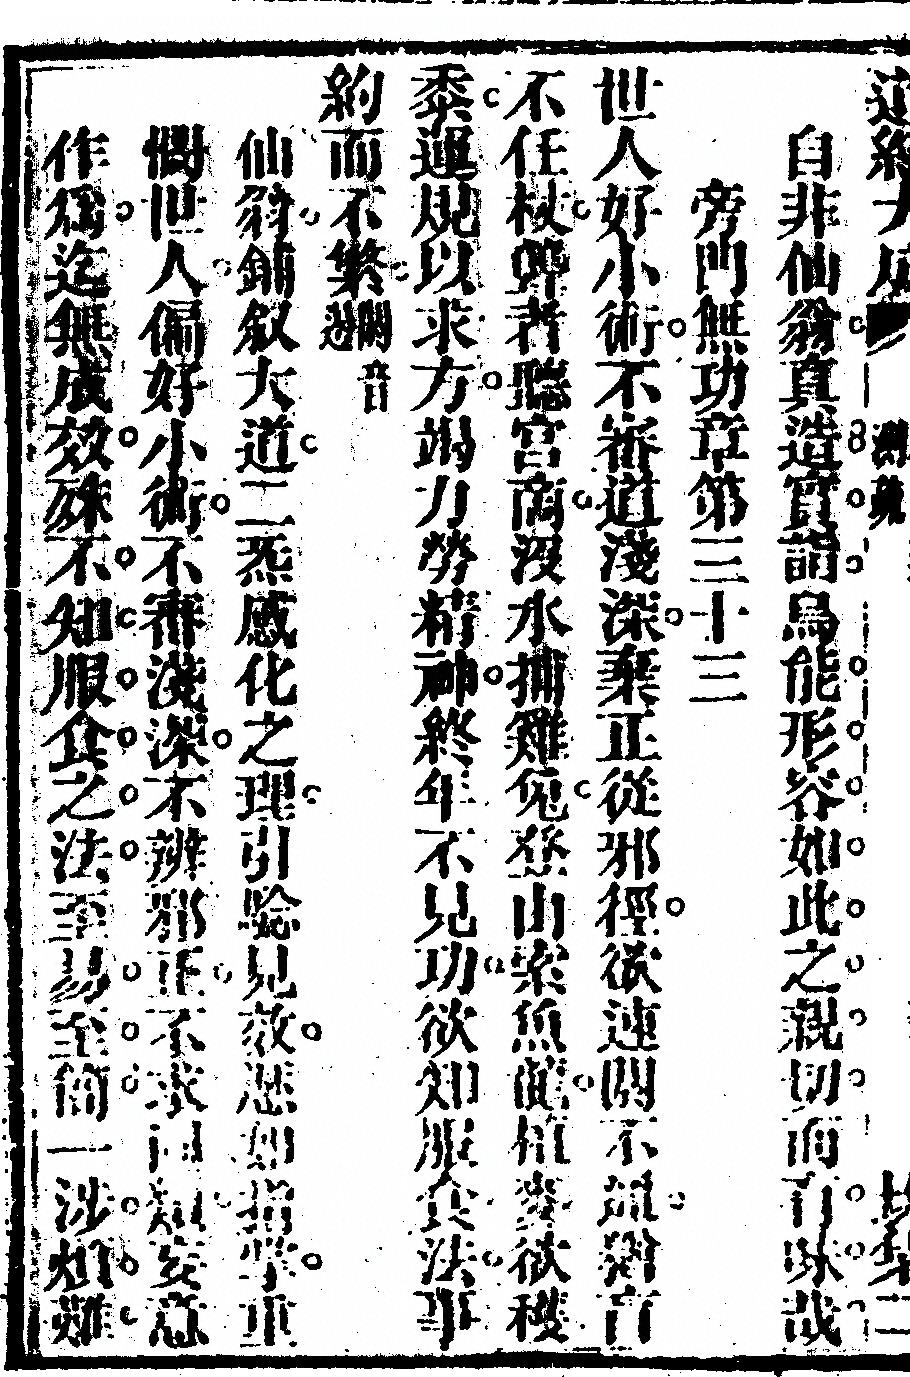 自非仙翁真造實詣烏能形容如此之親切而有味哉
旁門無功章第三十三
世人好小術不審道淺深棄正從邪徑欲速閼不通猶盲
不任杖聾者聽宮商沒水捕雉兔登山索魚龍植麥欲穫
黍運規以求方竭力勞精神終年不見功欲知服食法事
約而不繁閼音遏
仙翁鋪叙大道二炁感化之理引驗見效悉如指掌重
憫世人偏好小術不審淺深不辨邪正不求同類妄意
作爲迄無成效殊不知服食之法至易至簡一涉煩難